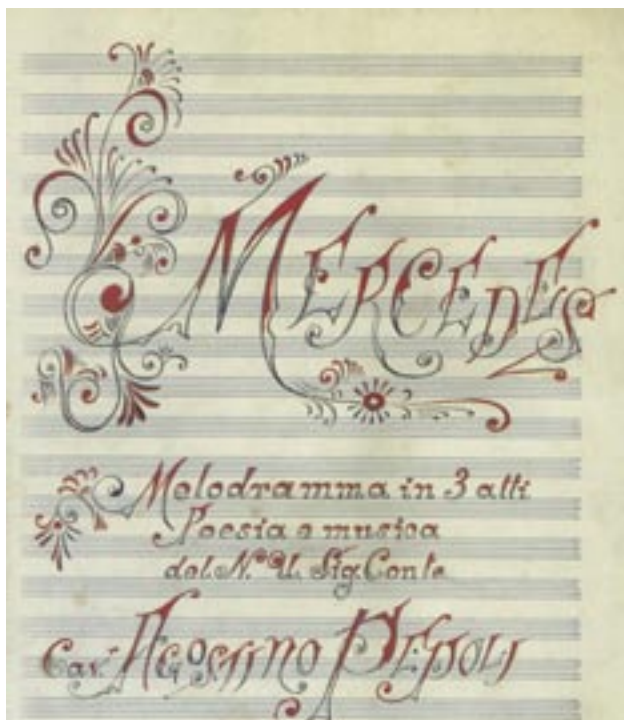 MERCEDES
Melodramma in 3 atti
Poesia e musica
del N. U. Sig. Conte
Cav. AGOSTINO PEPOLI